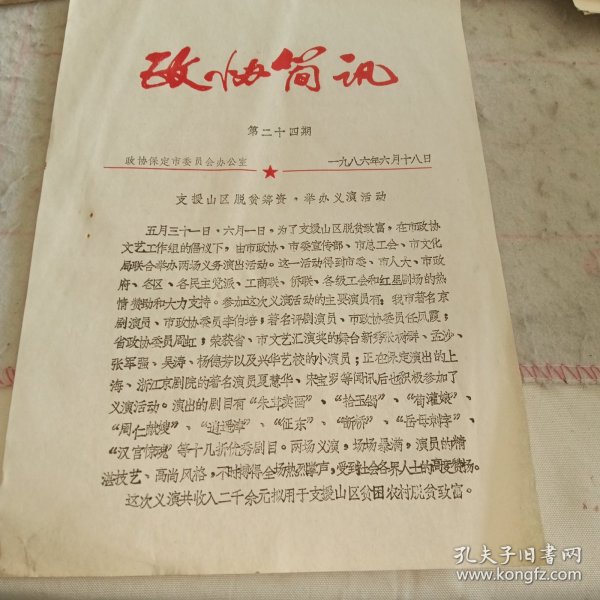 政协简讯
第二十四期
政协保定市委员会办公室 一九八六年六月十八日
支援山区脱贫筹资·举办义演活动
五月三十一日·六月一日·为了支援山区脱贫致富，在市政协
文艺工作组的倡议下，由市政协、市委宣传部、市总工会、市文化
局联合举办两场义务演出活动。这一活动得到市委、市人大、市政
府、各区、各民主党派、工商联、侨联、各级工会和红星剧场的热
情赞助和大力支持。参加这次义演活动的主要演员有：我市著名京
剧演员、市政协委员李伯培；著名评剧演员、市政协委员任凤霞；
省政协委员周虹；荣获省、市文艺汇演奖的舞台新秀张、孟沙、
张军强、吴涛、杨德芳以及兴华艺校的小演员；正在保定演出的上
海、浙江京剧院的著名演员夏慧华、宋宝罗等闻讯后也积极参加了
义演活动。演出的剧目有“朱耷卖画”、“拾玉镯”、“荀灌娘”、
“周仁献嫂”、“逍遥津”、“征东”、“断桥”、“岳母刺字”、
“汉宫惊魂”等十几折优秀剧目。两场义演，场场暴满，演员的精
湛技艺、高尚风格，不时博得全场热烈掌声，受到社会各界人士的高度赞扬。
这次义演共收入二千余元拟用于支援山区贫困农村脱贫致富。
孔夫子旧书网
www.kongfz.com